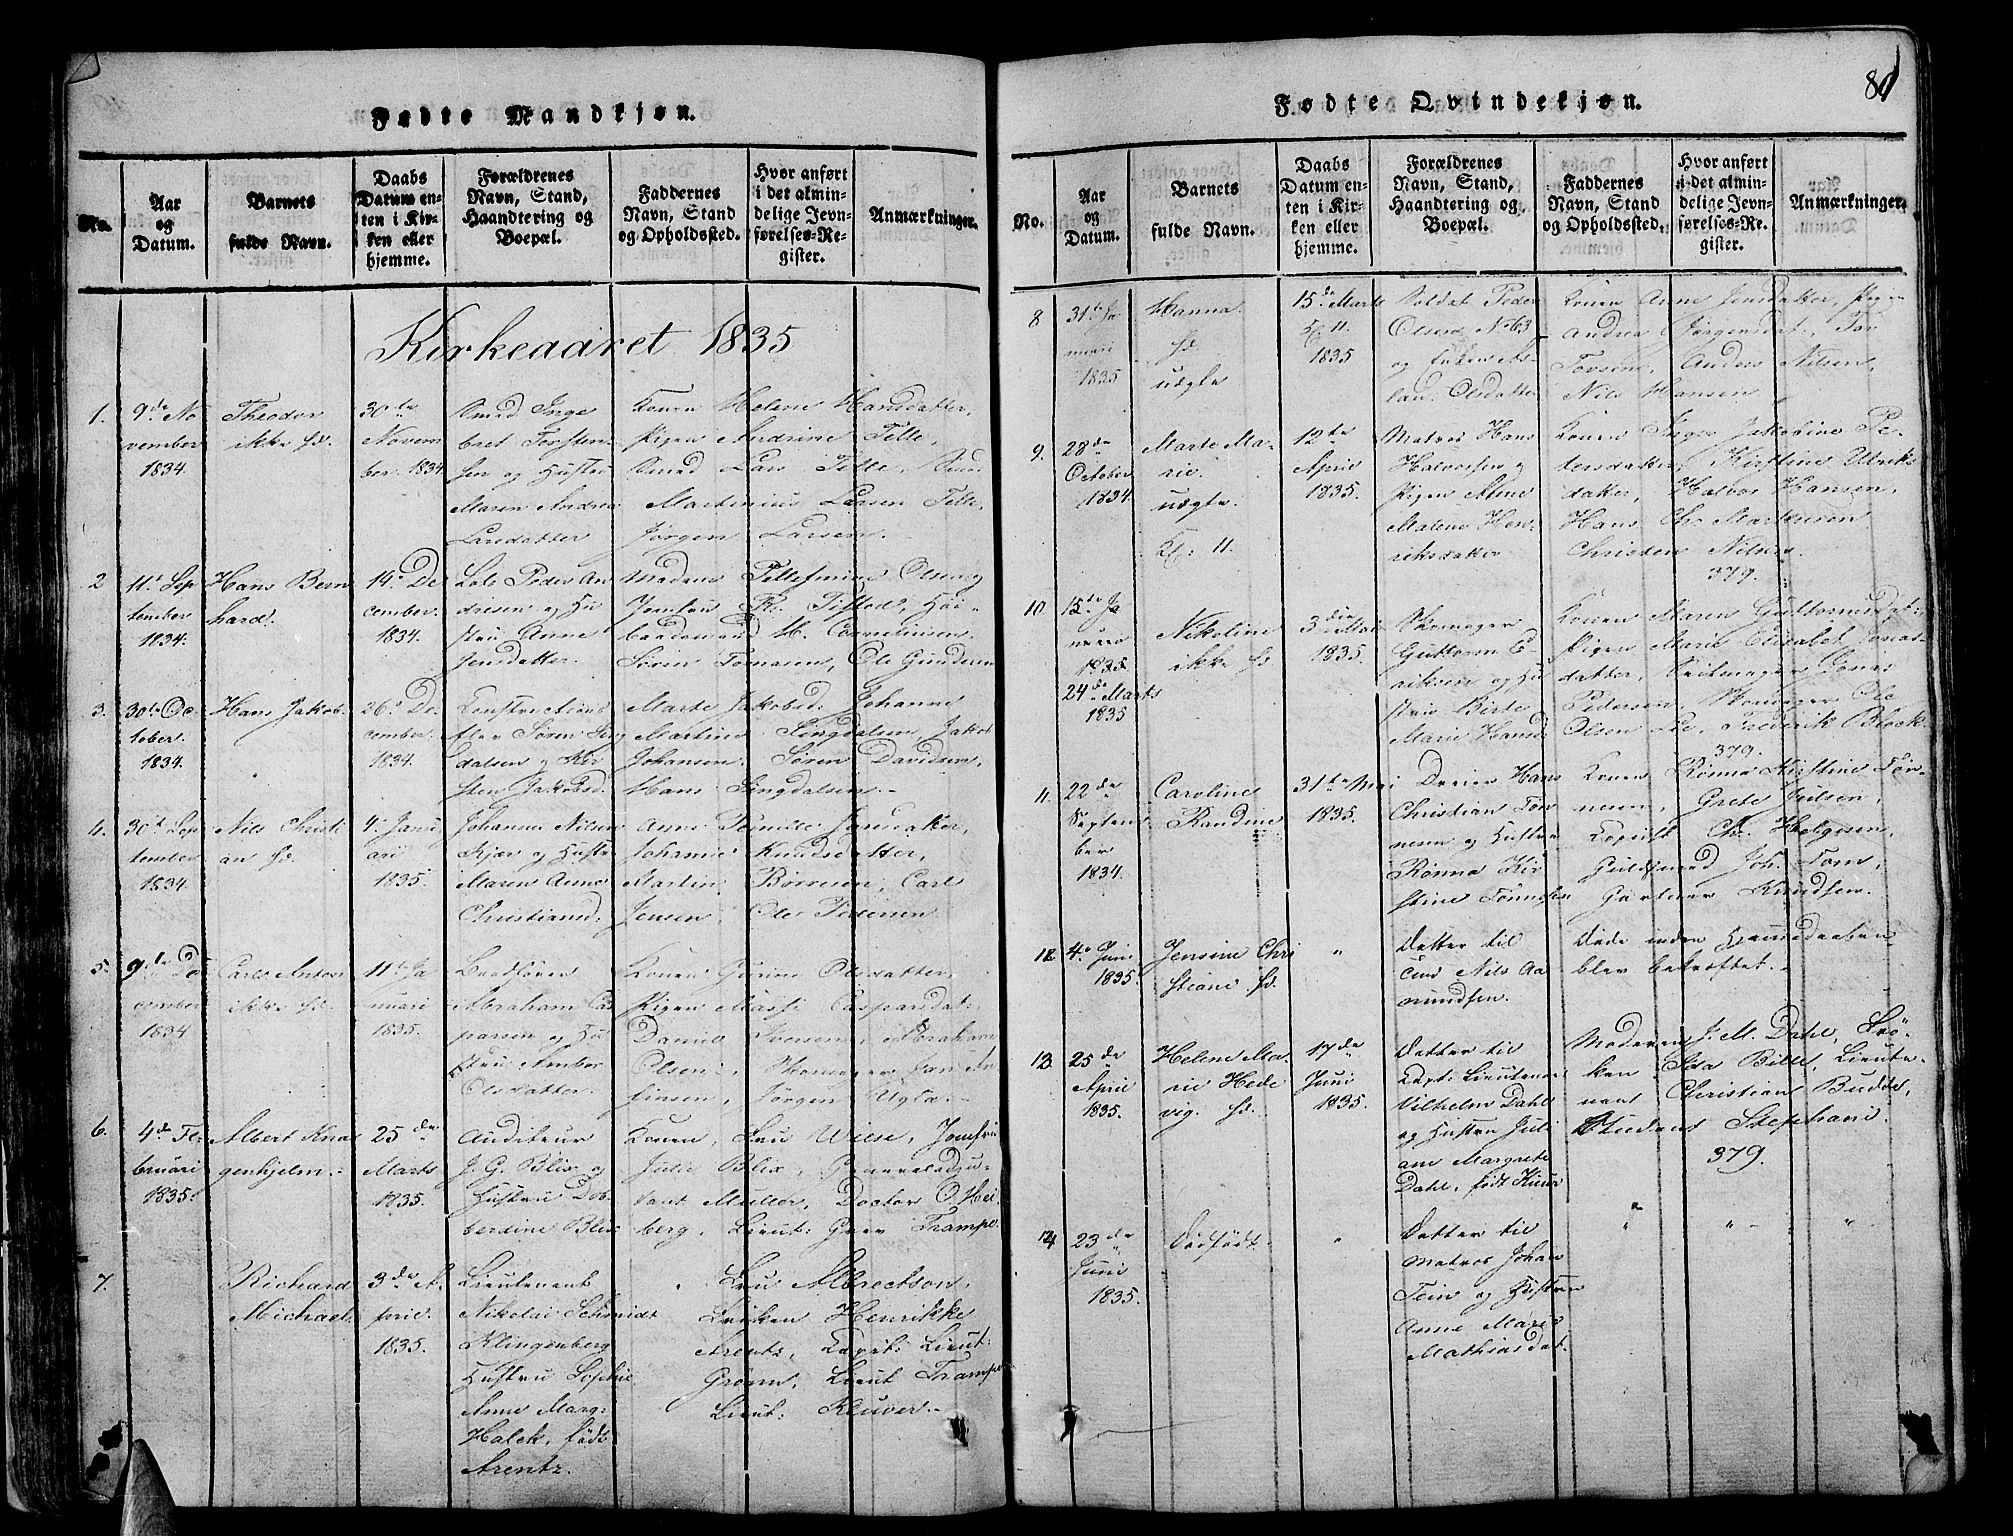 Fødte Mandkjøn.
No.
Aar
og
Datum.
Barnets
fulde Navn.
Daabs
Datum en-
ten i Kir-
ken eller
hjemme.
Forældrenes
Navn, Stand,
Haandtering og
Boepæl.
Faddernes
Navn, Stand
og Opholdssted.
Hvor anført
i det almin-
delige Jevn-
førelses-Re-
gister.
Anmærkninger.
Kirkeaaret 1835
1.
9de No
vember
1834
Theodor
ikke hd.
30te
Novem
ber. 1834
Smed Inge
bret Torsten
sen og Hustru
Maren Andrea
Larsdatter
Konen Helene Hansdatter,
Pigen Andrine Telle,
Smed Lars Telle,
Martinius Larsen Telle,
Jørgen Larsen.
2
11t Sep
tember
1834.
Hans Bern
hard.
14de De
cember.
1834.
Lods Peder An
dresen og Hu
stru Anne
Jensdatter.
Madam Tellefsen Olsen og
Jomfru Tisted,
Sören Tomasen, Ole Gundersen
3.
30te Oc
tober.
1834.
Hans Jakob.
26d De
cember.
1834.
Constructions
Sören Sing
dalsen og Kir
sten Jakobsd.
Marte Jakobsd. Johanne
Martine Singdalsen, Jakob
Johansen, Sören Davidsen,
Hans Singdalsen.
4.
30te Sep
tember
1834
Nils Christi
an hd.
4. Janu
ari
1835.
Johannes Nilsen
Kjær og Hustru
Maren Anne
Christiansd:
Anne Pernille Jonsdatter,
Johanne Knudsdatter,
Martin Börresen, Carl
Jensen, Ole Pedersen
5.
9de De
cember
1834
Carl Anton
ikke hd.
11te Ja
nuari
1835.
Abraham Cas
parsen og Hu
stru
Olsdatter
Konen Gurine Olsdatter,
Pigen Massi Caspersdat:
Daniel Svensen, Abraham
Olsen, Skomager
finsen, Jörgen Uglæ
6.
4de Fe
bruari
1835.
Albert Knag
genhjelm.
25de
Marts
1835.
Auditeur
J. G. Blix og
Hustru Dob
berdine Blix
Konen, Fru Wiese, Jomfru
Julie Blix,
Müller, Doctor O. Hei
berg, Lieut: Grev Trampe
7.
Richard
Michael
3de A
pril.
1835.
Lieutenant
Nikolai Schmidt
Klingenberg
Hustru Sophie
Anne Marg:
Halck, født
Arentz.
Fru Albrectson,
Fröken Henrikke
Arentz, Capit: Lieut:
Grönn, Lieut Trampe
Lieut: Klüver.
81
Fødte Qvindekjøn.
No.
Aar
og
Datum.
Barnets
fulde Navn.
Daabs
Datum en-
ten i Kir-
ken eller
hjemme.
Forældrenes
Navn, Stand,
Haandtering og
Boepæl.
Faddernes
Navn, Stand
og Opholdssted.
Hvor anført
i det almin-
delige Jevn-
førelses-Re-
gister.
Anmærkninger.
8
31te Ja
nuari
1835
Hanna.
hd.
uægte
15de Marts
Kl. 11.
1835
Soldat Peder
Olsen No 63
og Enken As
laug Olsdatter
Konen Anne Jensdatter, Pigen
Andrea Jörgensdat:, Tov
Tovsen, Anders Nilsen,
Nils Hansen
9.
28de
October
1834.
Marte Ma-
rie.
uægte.
Kl: 11.
12te
April
1835.
Matros Hans
Halvorsen og
Pigen Anne
Malene Hen-
riksdatter
Konen Inger Jakobine Pe-
dersdatter, Kirstine Ulriks
datter, Halvor Hansen,
Hans Chr. Martensen
Christen Nilsen.
379.
10.
15de Ja
nuar
1835
24de Marts
1835
Nikoline
ikke hd.
3die Mai
1835.
Skomager
Guttorm E-
riksen og Hu
stru Birte
Marie Hansd
Konen Maren Guttormsdat:
Pigen Marie Elisabet Jonas-
datter, Seilmager Jonas
Pedersen, Skomager Ole
Olsen Lee, Frederik Block
379.
11.
22de
Septem
ber
1834.
Caroline
Randine
31te Mai
1835.
Dreier Hans
Christian Tön
nesen og Hustru
Rönna Kir
stine Tönnesen
Konen Rönna Kirstine Tön-
nesen, Grete Juelsen,
Copiist Chr. Helgesen,
Guldsmed Joh. Tom,
Gartner Knudsen.
12
4de Juni
1835.
Jensine Chri
stiane hd.
"
Datter til
Nils Aa
mundsen.
Döde inden Hjemmedaaben
blev bekræftet.
13.
25de
April
1835.
Helene Ma-
rie Hede
vig. hd.
17de
Juni
1835.
Datter til
Capt: Lieutenant
Vilhelm Dahl
og Hustru Juli
ane Margrete
Dahl, født
Madam J. M. Dahl, Frö-
ken Sta Bille, Lieute-
nant Christian Budde,
Student Stephani.
379.
14
23de
Juni
1835.
Dödfödt.
"
Datter til
Matros Johan
Tein og Hustru
Anne Maria
Mathiasdat.
"
"
"